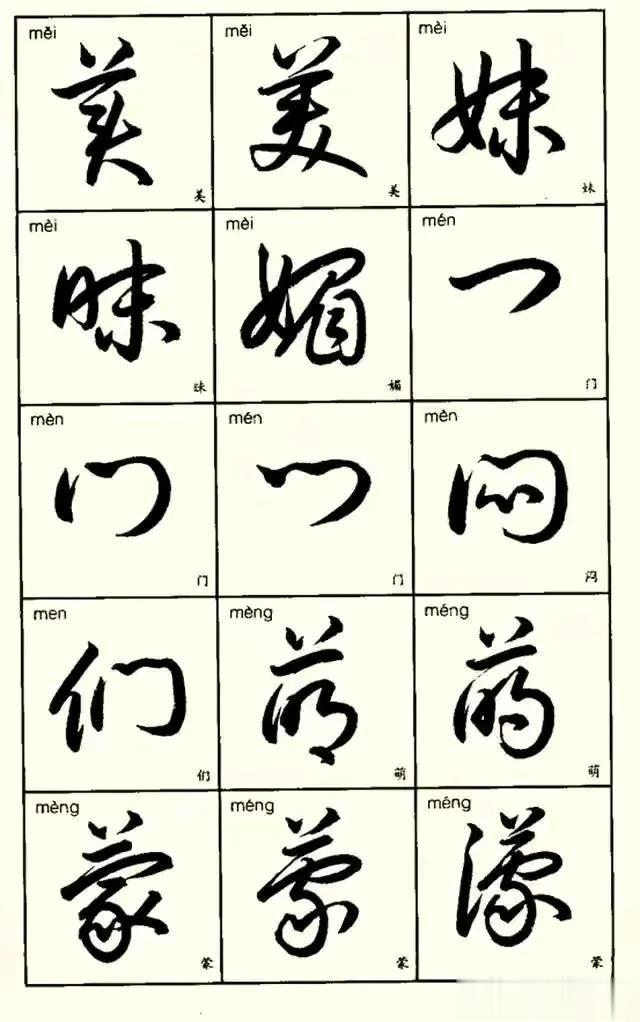 měi měi mèi
美 美 妹
美 美 妹
mèi mèi mén
昧 媚 门
昧 媚 门
mèn mén mèn
门 门 闷
门 门 闷
men mèng méng
们 萌 萌
们 萌 萌
mèng méng méng
蒙 蒙 濛
蒙 蒙 蒙